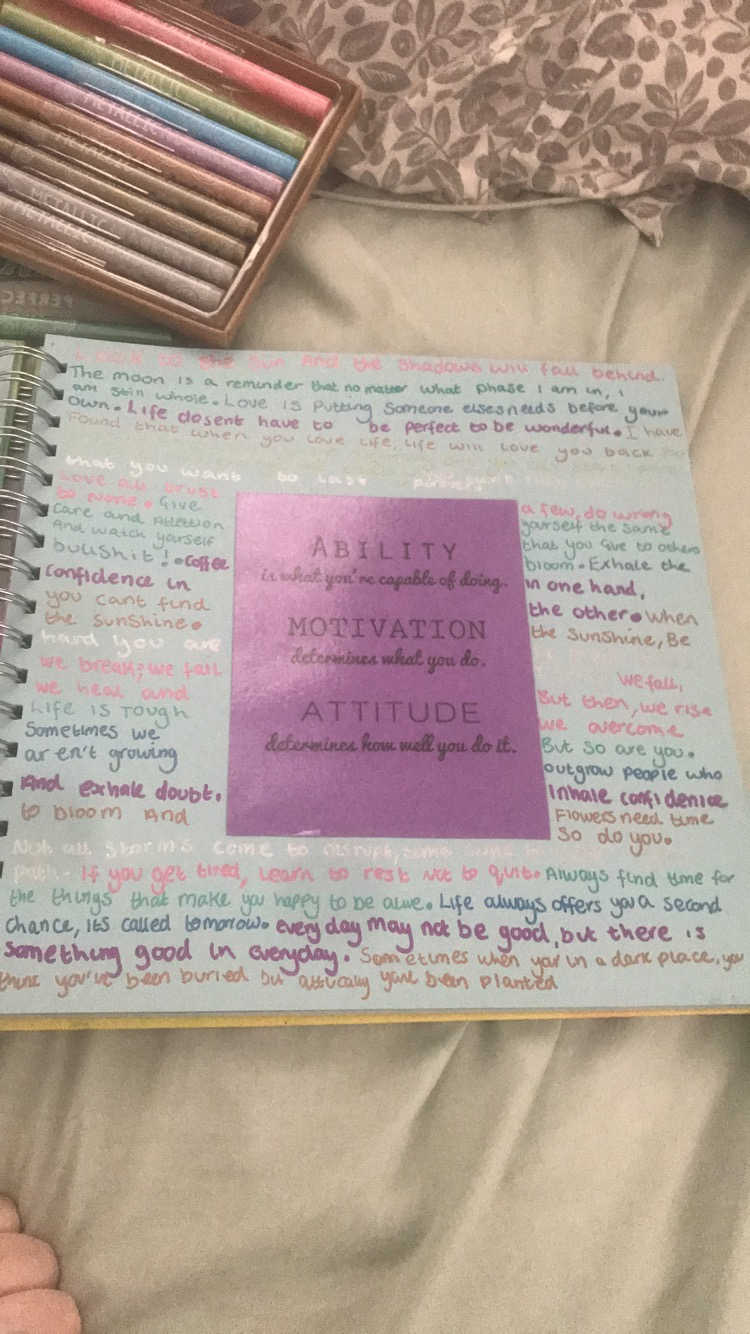 METALLIC
METALLIC
METALLIC
METALLIC
METALLIC
METALLIC
METALLIC
PERFEC
Look to the sun And the shadows will fall behind.
The moon is a reminder that no matter what phase I am in, i
am still whole. Love is putting someone elses needs before your
own. Life doesent have to be perfect to be wonderful. I have
found that when you love life, life will love you back
that you want to last
Love all trust a few, do wrong
to none. Give yourself the same
care and Attettion that you Give to others
And watch yourself bloom. Exhale the
bullshit! Coffee in one hand,
confidence in the other. When
you cant find the sunshine, Be
the sunshine.
hard you are
we fall,
we break, we fail But then, we rise
we heal and we overcome
Life is Tough But so are you.
Sometimes we outgrow people who
aren't growing Inhale confidence
And exhale doubt. Flowers need time
to bloom And So do you.
ABILITY
is what you're capable of doing.
MOTIVATION
determines what you do.
ATTITUDE
determines how well you do it.
Not all storms come to disrupt, some
path. If you get tired, Learn to rest Not to quit. Always find time for
the things that make you happy to be alive. Life always offers you a second
chance, its called tomorrow. everyday may not be good, but there is
something good in everyday. Sometimes when your in a dark place, you
think you've been buried but
been planted